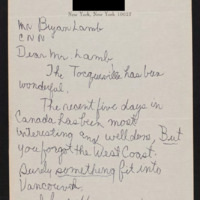 New York, New York 10023
Mr Bryan Lamb
CNN
Dear Mr. Lamb
The Tocqueville has been
wonderful.
The recent five days in
Canada has been most
interesting and well done. But
you forgot the West Coast.
Surely something fit into
Vancouver